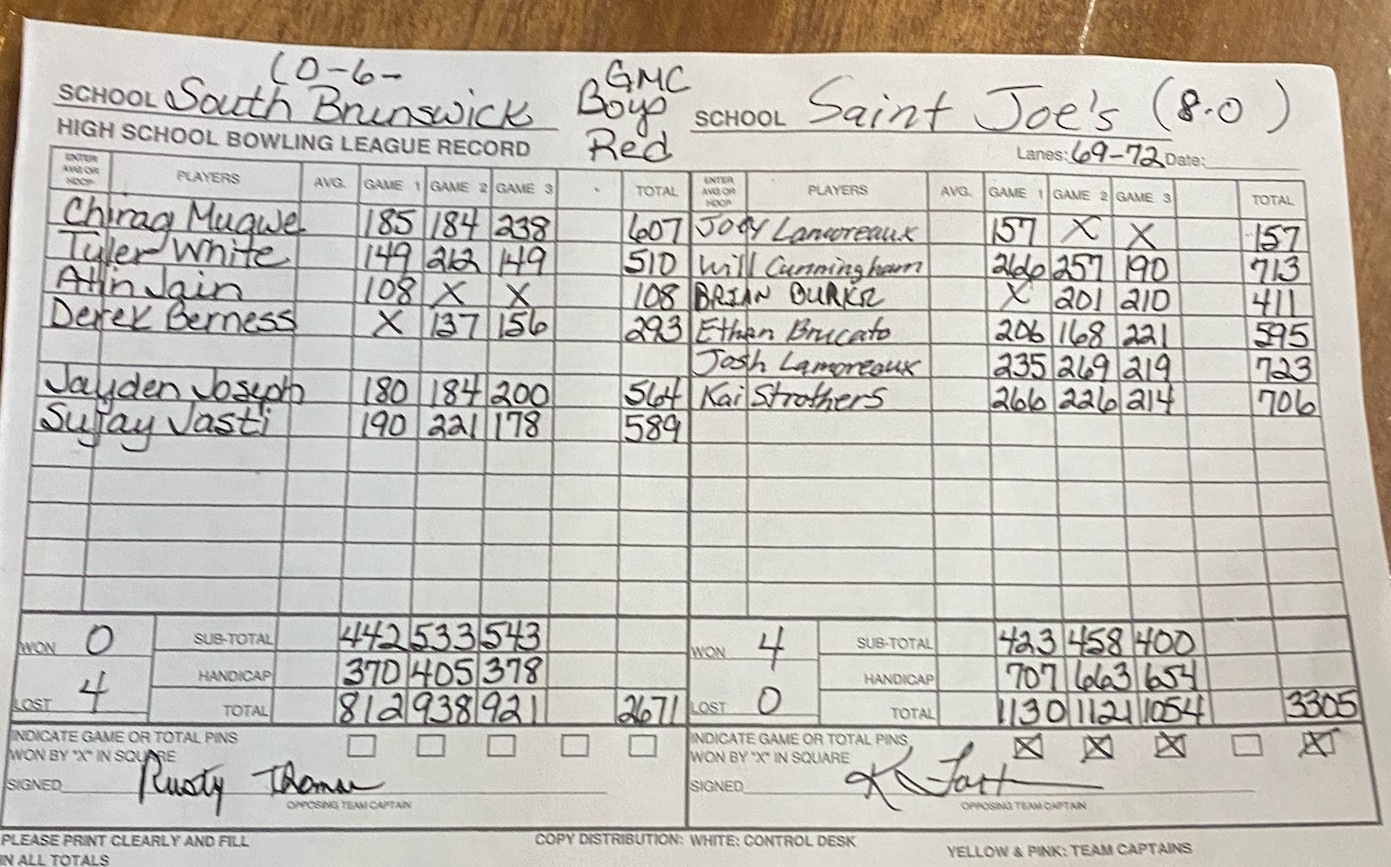 (0-6-
SCHOOL South Brunswick GMC Boys Red SCHOOL Saint Joe's (8-0)
HIGH SCHOOL BOWLING LEAGUE RECORD Lanes: 69-72 Date:
ENTER AVG OR HDCP PLAYERS AVG. GAME 1 GAME 2 GAME 3 TOTAL ENTER AVG OR HDCP PLAYERS AVG. GAME 1 GAME 2 GAME 3 TOTAL
Chirag Mugwe 185 184 238 607 Joey Lamoreaux 157 X X 157
Tyler White 149 212 149 510 Will Cunningham 266 257 190 713
Atin Jain 108 X X 108 BRIAN BURKE X 201 210 411
Derek Berness X 137 156 293 Ethan Brucato 206 168 221 595
Josh Lamoreaux 235 269 219 723
Jayden Joseph 180 184 200 564 Kai Strothers 266 226 214 706
Sujay Jasti 190 221 178 589
WON 0 SUB-TOTAL 442 533 543 WON 4 SUB-TOTAL 423 458 400
HANDICAP 370 405 378 HANDICAP 707 663 654
LOST 4 TOTAL 812 938 921 2671 LOST 0 TOTAL 1130 1121 1054 3305
INDICATE GAME OR TOTAL PINS WON BY "X" IN SQUARE INDICATE GAME OR TOTAL PINS WON BY "X" IN SQUARE X X X X
SIGNED Rusty Thoman SIGNED
OPPOSING TEAM CAPTAIN OPPOSING TEAM CAPTAIN
PLEASE PRINT CLEARLY AND FILL IN ALL TOTALS COPY DISTRIBUTION: WHITE: CONTROL DESK YELLOW & PINK: TEAM CAPTAINS